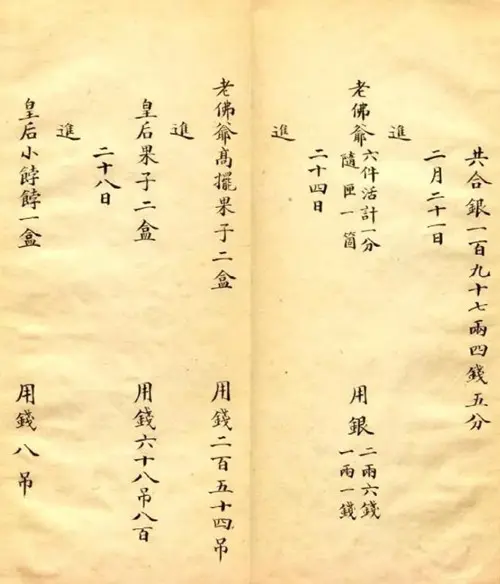 共合銀一百九十七兩四錢五分
二月二十一日
進
老佛爺六件活計一分隨匣一箇 用銀二兩六錢一兩一錢
二十四日
進
老佛爺高擺果子二盒 用錢二百五十四吊
進
皇后果子二盒 用錢六十八吊八百
二十八日
進
皇后小餑餑一盒 用錢八吊